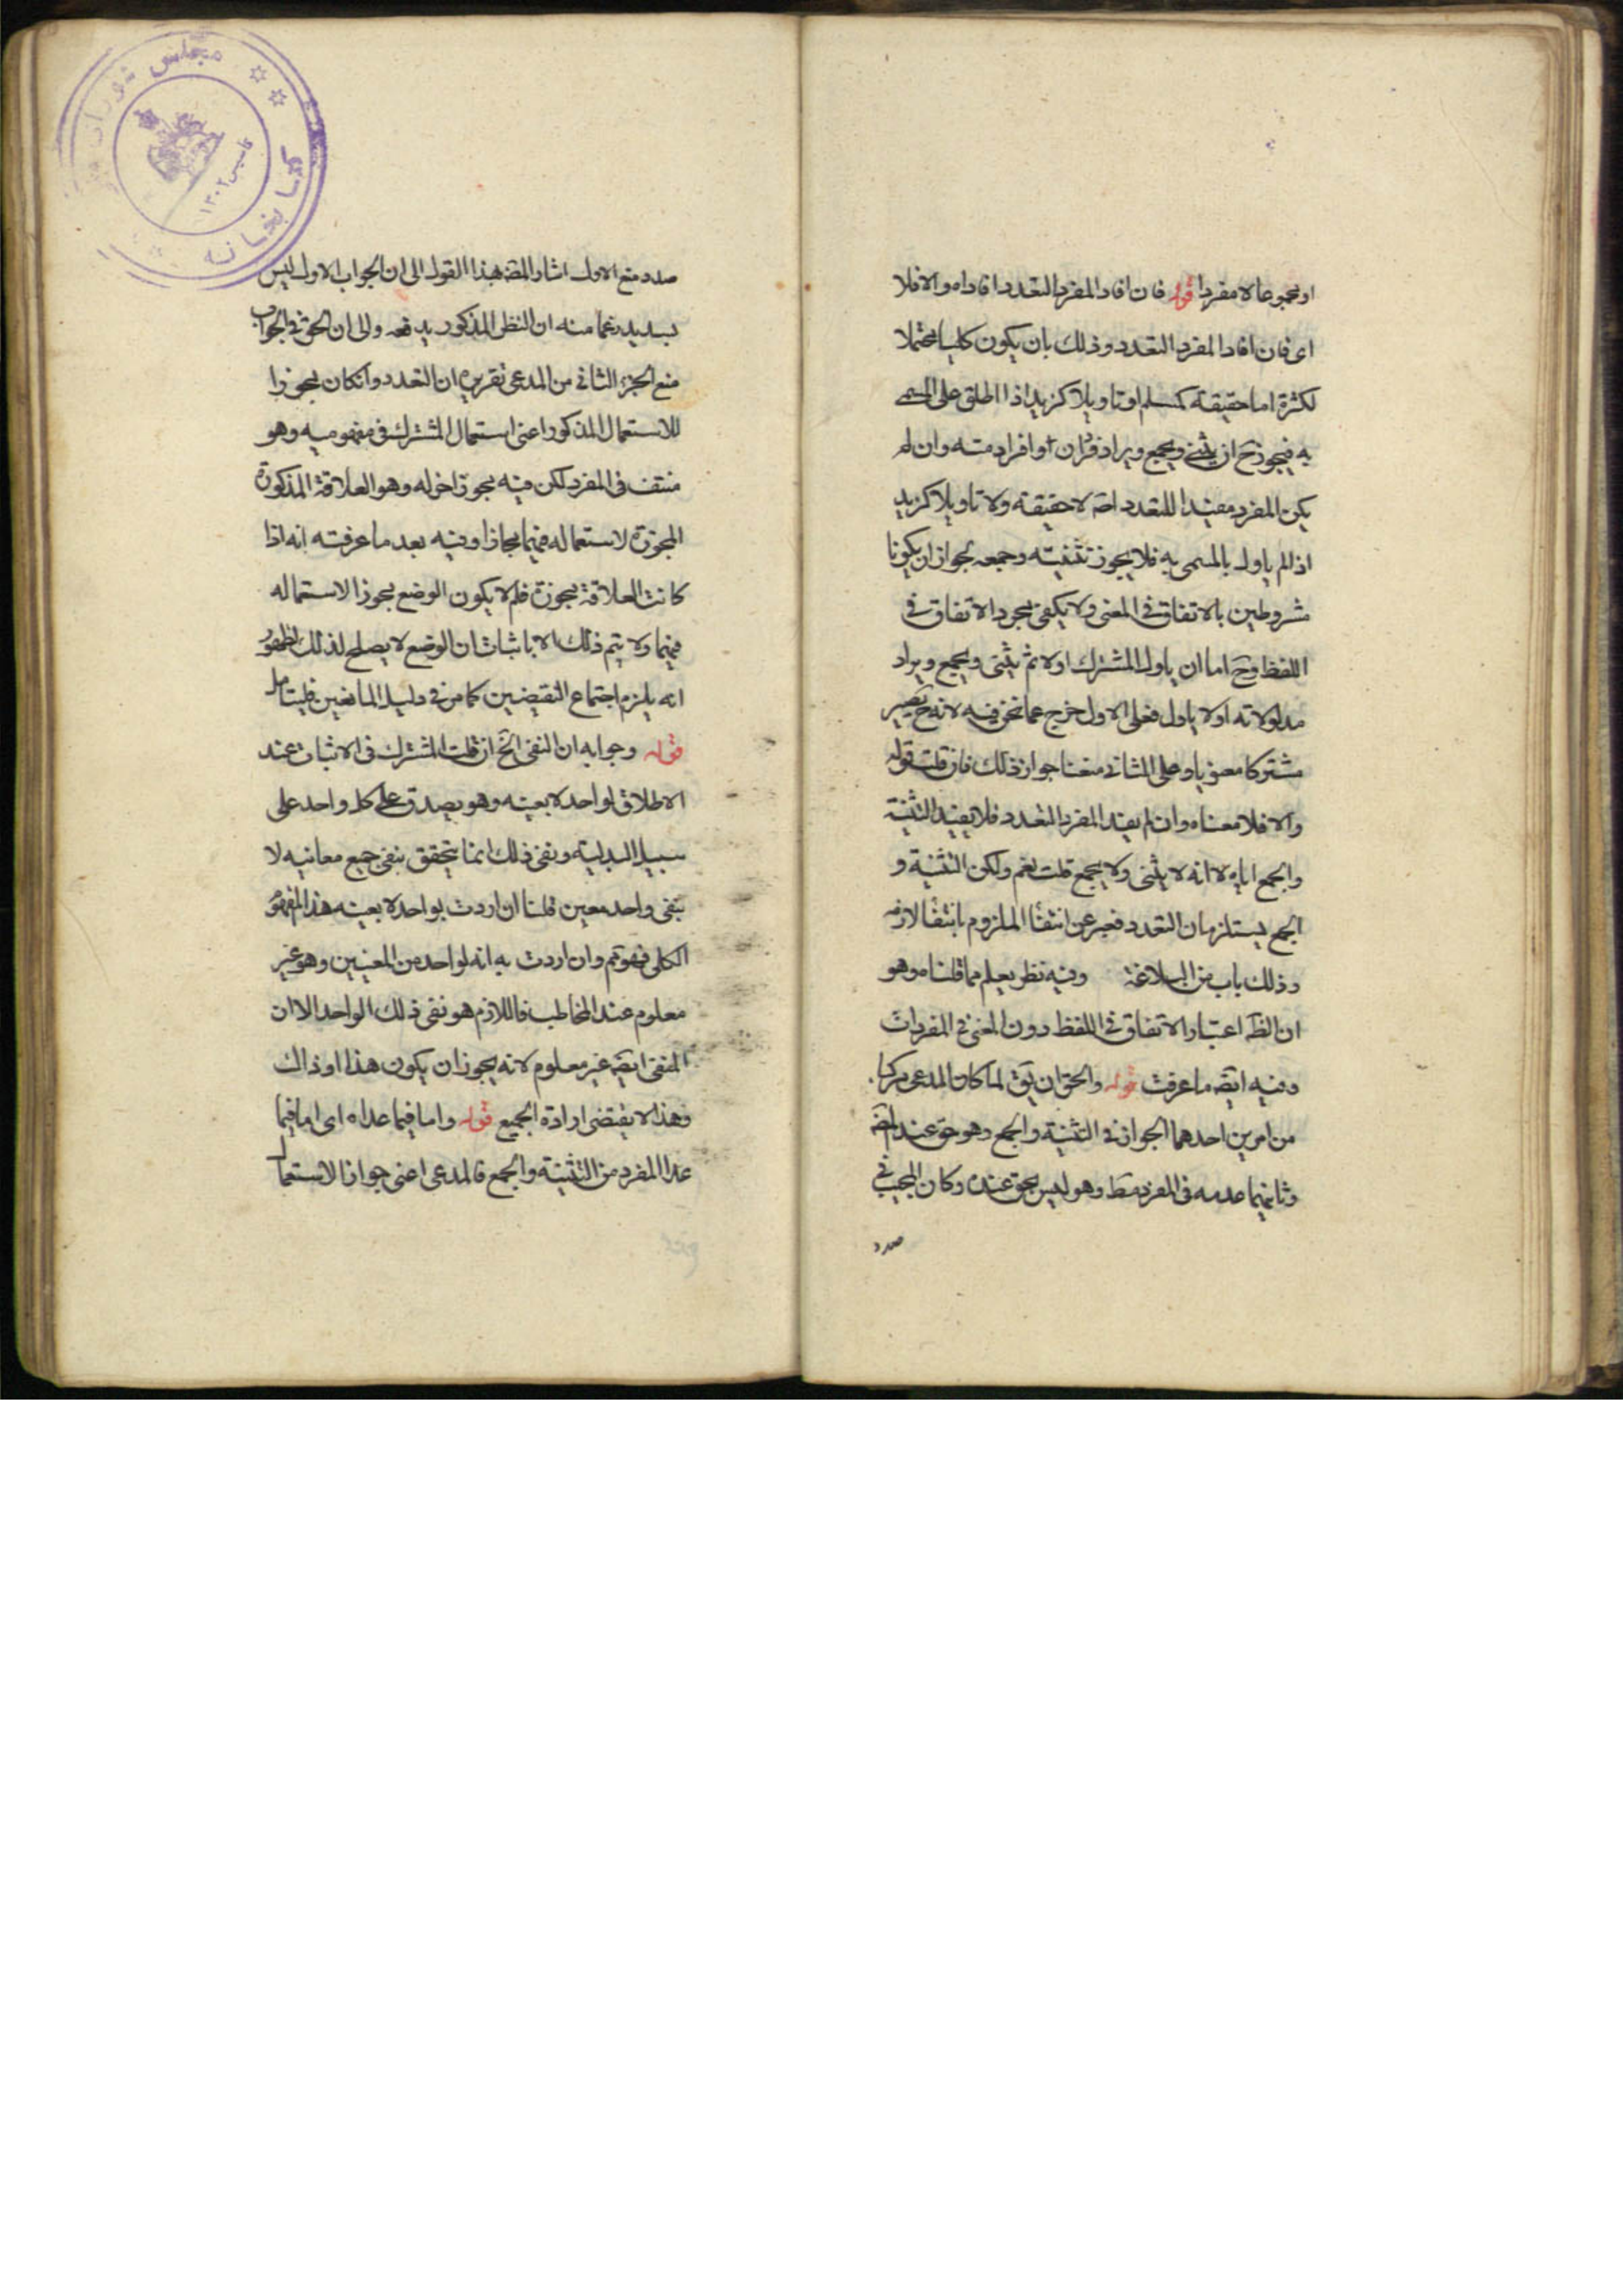 او مجموعا لا مفردا قوله فان افاد المفرد التعدد افاداه والا فلا
اى فان افاد المفرد التعدد وذلك بان يكون كليا محتملا
لكثرة اما حقيقة كمسلم او تاويلا كزيد اذا اطلق على المسمى
به فيجوز ح ان يثنى ويجمع ويراد فردان او افراد منه وان لم
يكن المفرد مفيدا للتعدد اصلا لا حقيقة ولا تاويلا كزيد
اذا لم ياول بالمسمى به فلا يجوز تثنيته وجمعه لجواز ان يكونا
مشروطين بالاتفاق في المعنى ولا يكفى مجرد الاتفاق في
اللفظ وح اما ان ياول المشترك اولا ثم يثنى ويجمع ويراد
مدلولاته اولا ياول فعلى الاول خرج عما نحن فيه لانه ح يصير
مشتركا معنويا وعلى الثانى منعنا جواز ذلك فان قلت قوله
والا فلا معناه وان لم يفيد المفرد التعدد فلا يفيد التثنية
والجمع اياه لا انه لا يثنى ولا يجمع قلت نعم ولكن التثنية و
الجمع يستلزمان التعدد فعبر عن انتفا الملزوم بانتفا لازمه
وذلك باب من البلاغة وفيه نظر يعلم مما قلناه وهو
ان الظ اعتبار الاتفاق في اللفظ دون المعنى في المفردات
وفيه ايضه ما عرفت قوله والحق ان يق لما كان المدعى مركبا
من امرين احدهما الجواز في التثنية والجمع وهو حق عند المصه
وثانيهما عدمه فى المفرد فقط وهو ليس بحق عنده وكان المجيب في
صدد
صدد منع الاول اشار المصه بهذا القول الى ان الجواب الاول ليس
بسديد زعما منه ان النظر المذكور يدفعه والى ان الحق في الجواب
منع الجزء الثانى من المدعى تقريره ان التعدد وانكان مجوزا
للاستعمال المذكور اعنى استعمال المشترك فى مفهوميه وهو
منتف فى المفرد لكن فيه مجوز اخر له وهو العلاقة المذكورة
المجوزة لاستعماله فيهما مجازا وفيه بعد ما عرفته انه اذا
كانت العلاقة مجوزة فلم لا يكون الوضع مجوزا لاستعماله
فيهما ولا يتم ذلك الا باثبات ان الوضع لا يصلح لذلك لظهور
انه يلزم اجتماع النقيضين كما مر فى دليل المانعين فليتامل
قوله وجوابه ان النفى الخ ان قلت المشترك فى الاثبات عند
الاطلاق لواحد لا بعينه وهو يصدق على كل واحد على
سبيل البدلية ونفى ذلك انما يتحقق بنفى جميع معانيه لا
بنفى واحد معين قلنا ان اردت بواحد لا بعينه هذا المفهوم
الكلى فهو ثم وان اردت به انه لواحد من المعنيين وهو غير
معلوم عند المخاطب فاللازم هو نفى ذلك الواحد الا ان
المنفى ايضه غير معلوم لانه يجوز ان يكون هذا او ذاك
وهذا لا يقتضى ارادة الجميع قوله واما فيما عداه اى اما فيما
عدا المفرد من التثنية والجمع فالمدعى اعنى جواز الاستعمال